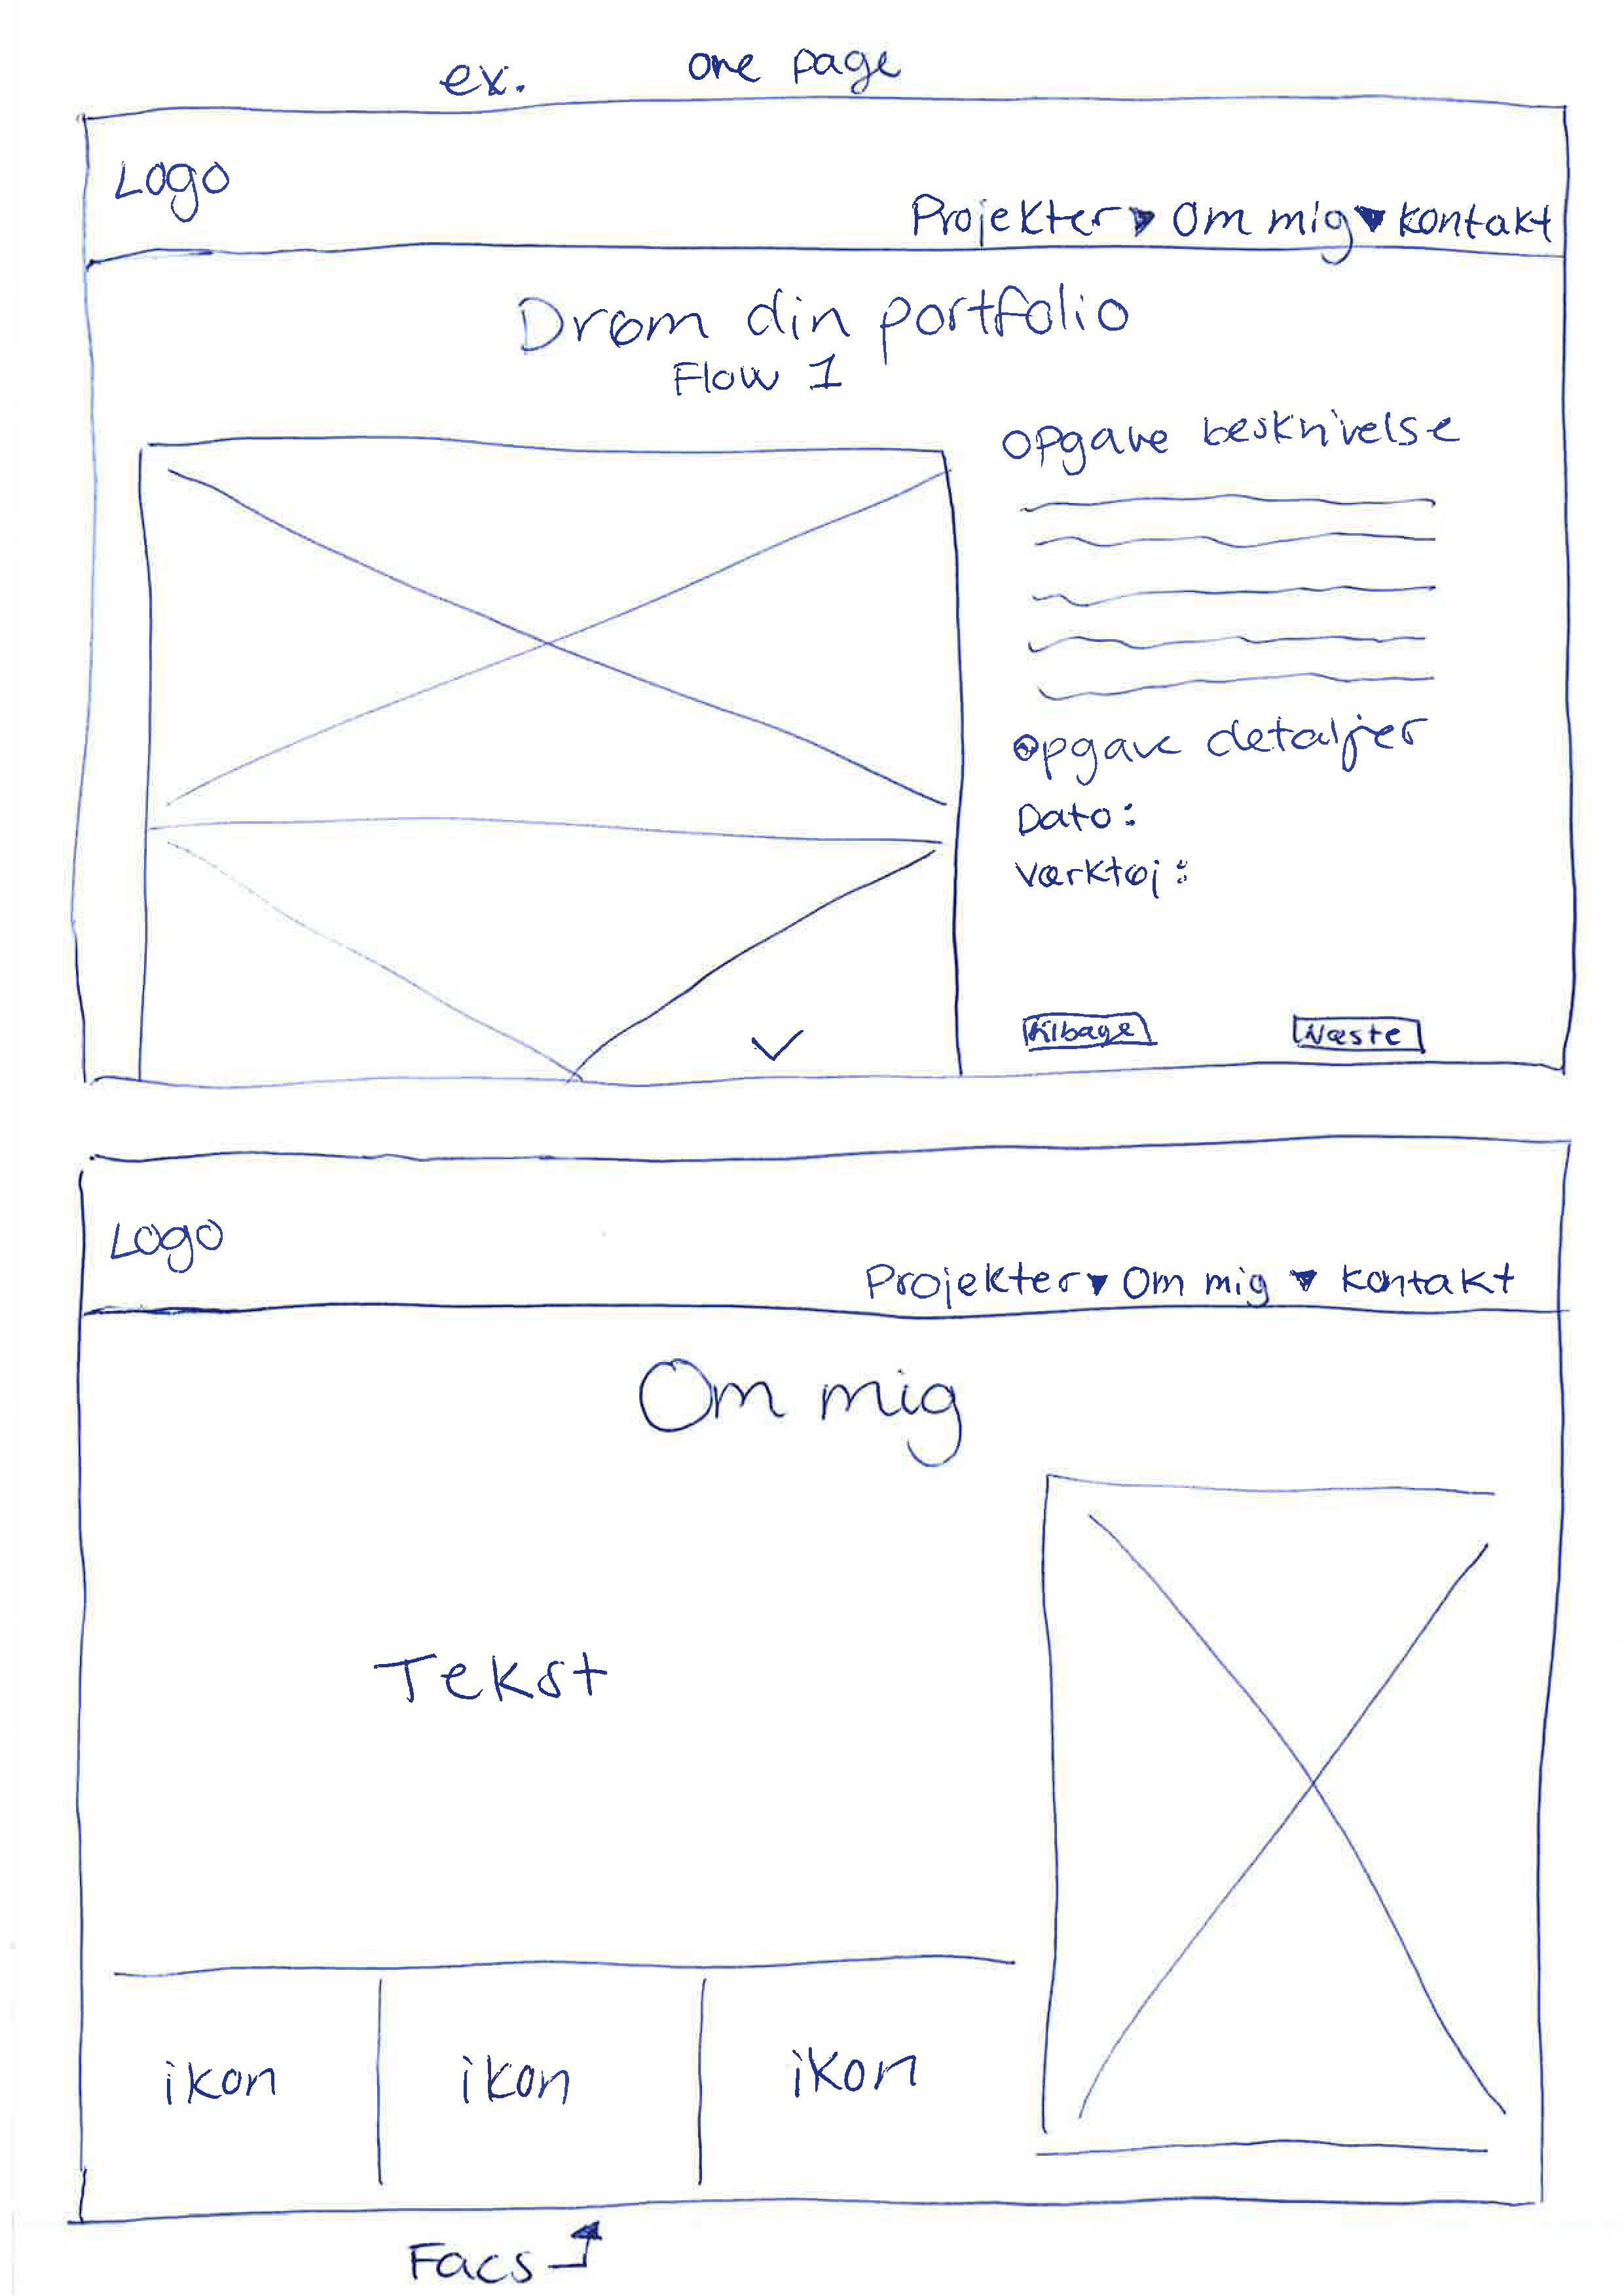 ex. one page
Logo
Projekter Om mig Kontakt
Drøm din portfolio
Flow 1
Opgave beskrivelse
Opgave detaljer
Dato:
Værktøj:
Tilbage Næste
Logo
Projekter Om mig Kontakt
Om mig
Tekst
ikon ikon ikon
Facs